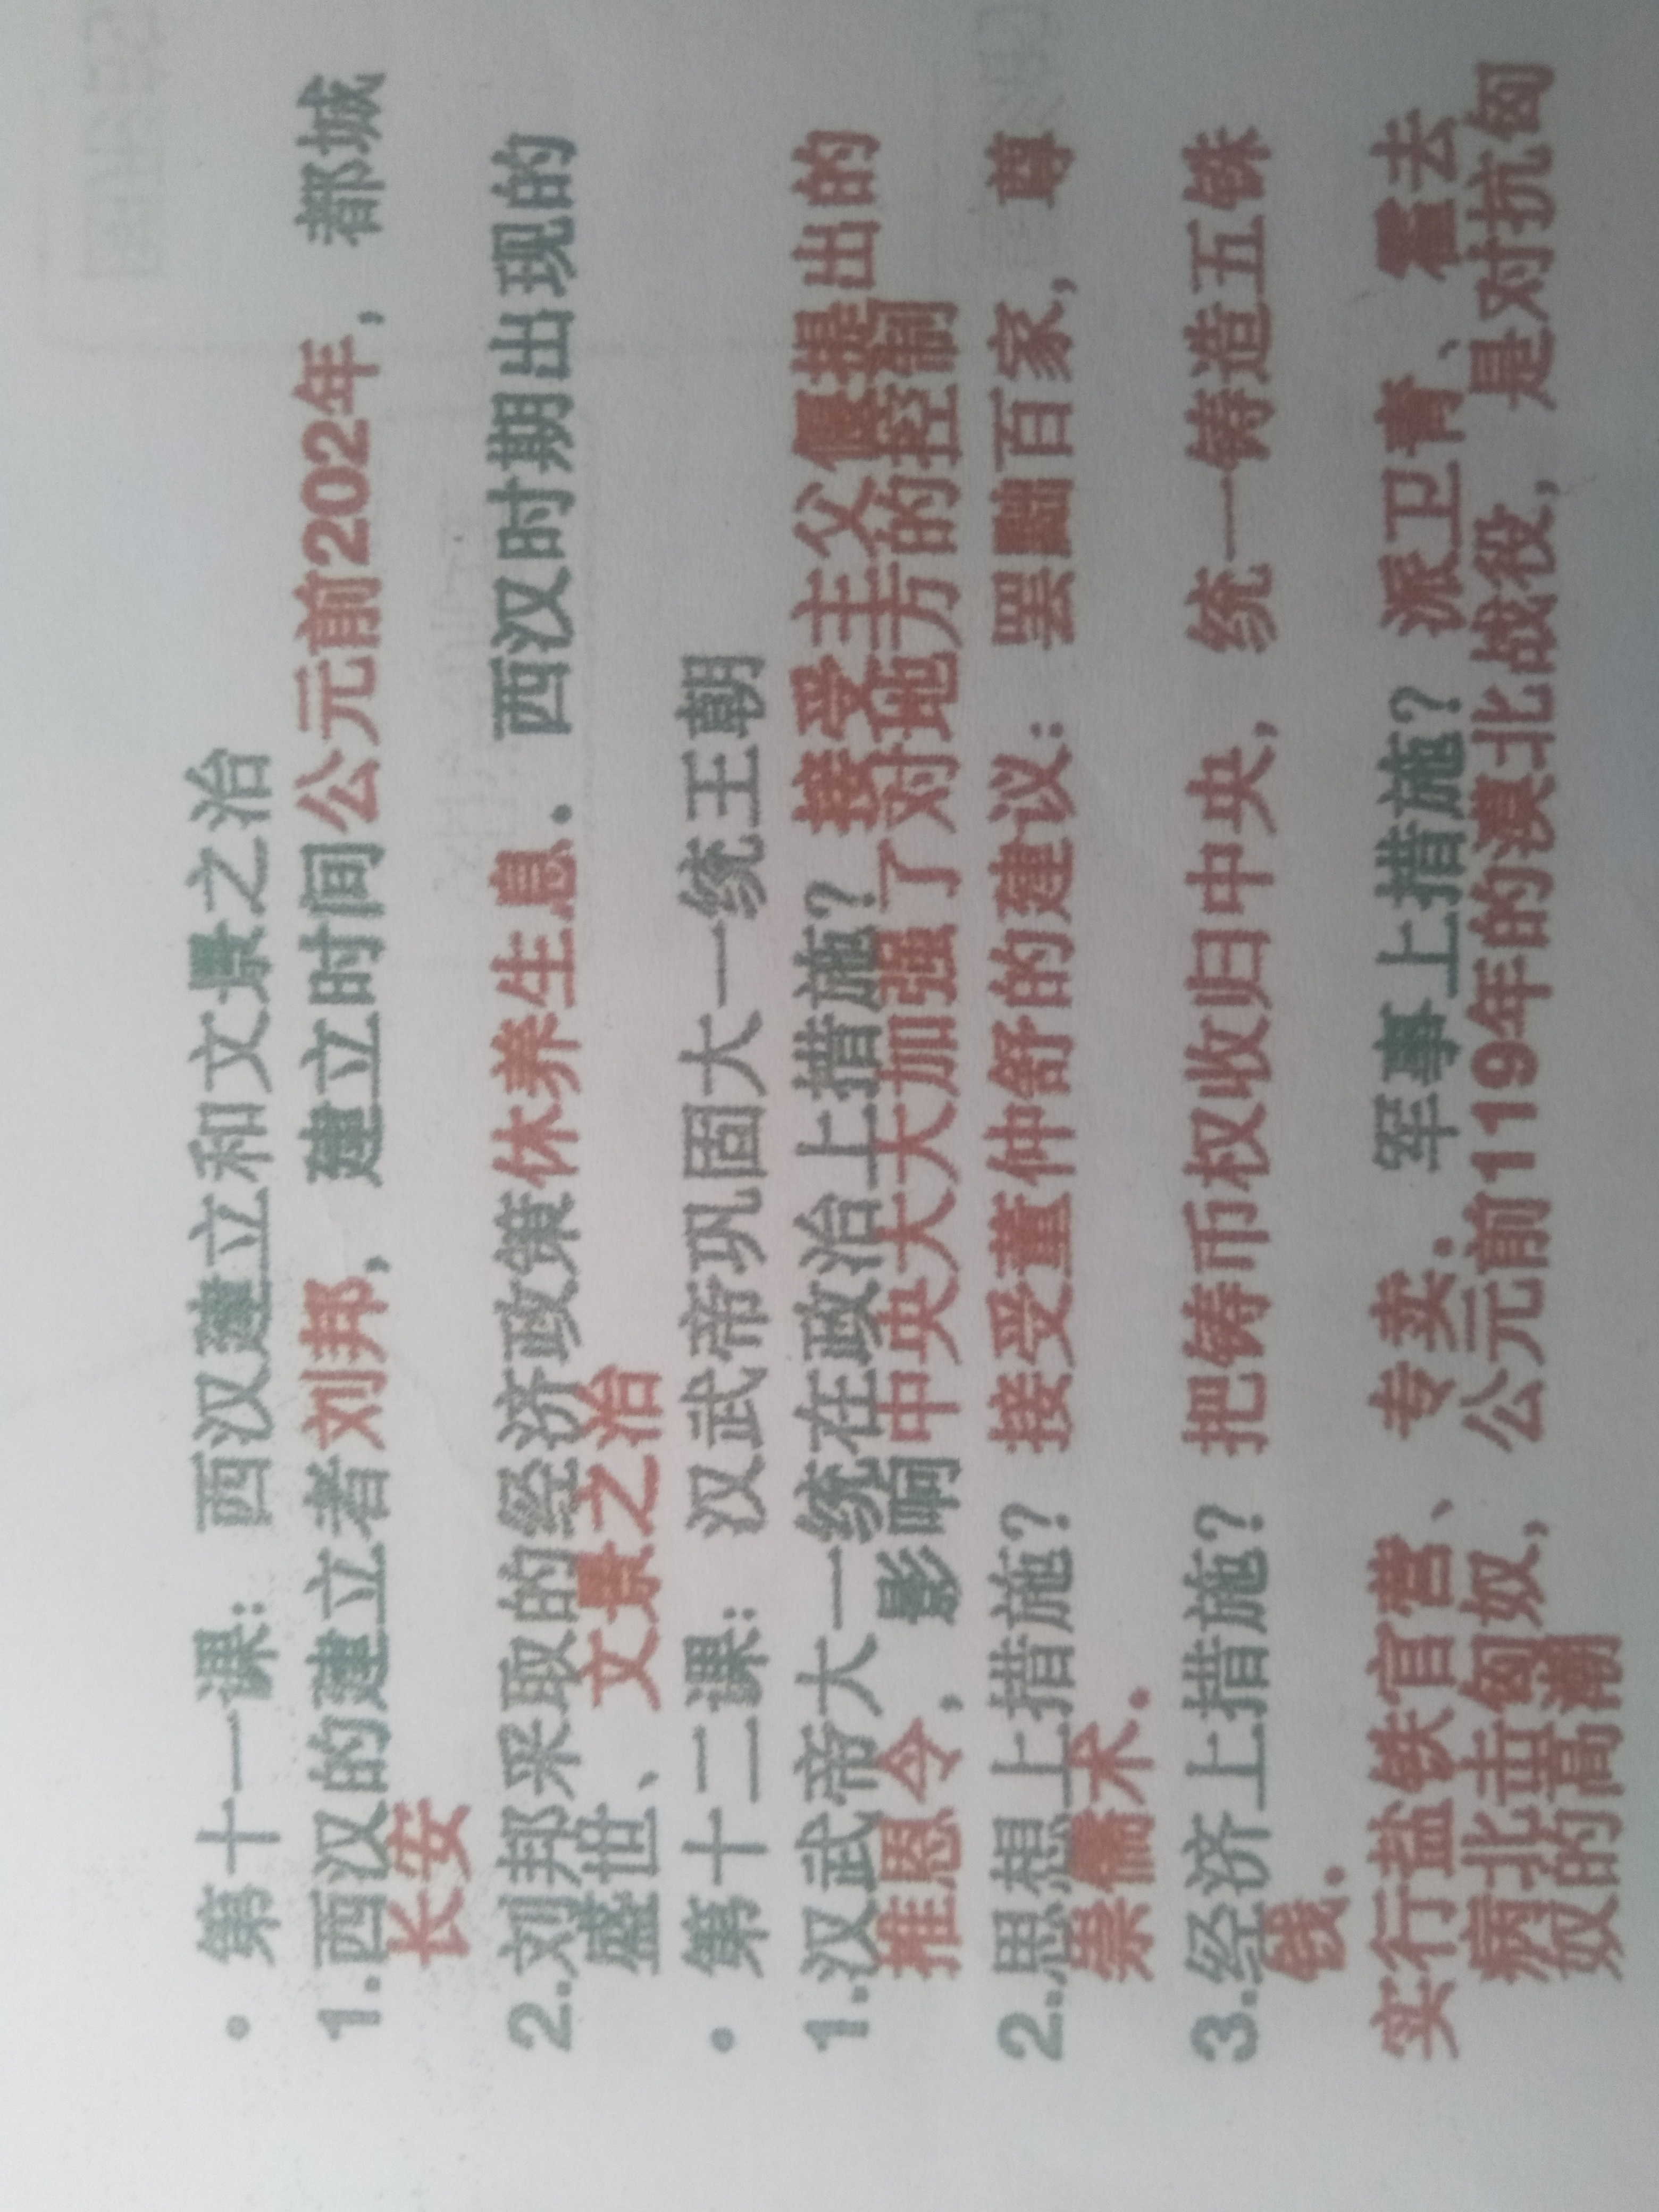 • 第十一课：西汉建立和文景之治
1.西汉的建立者刘邦，建立时间公元前202年，都城
长安
2.刘邦采取的经济政策休养生息．西汉时期出现的
盛世、文景之治
• 第十二课：汉武帝巩固大一统王朝
1.汉武帝大一统在政治上措施？接受主父偃提出的
推恩令，影响中央大大加强了对地方的控制
2.思想上措施？接受董仲舒的建议：罢黜百家，尊
崇儒术．
3.经济上措施？把铸币权收归中央，统一铸造五铢
钱．
实行盐铁官营、专卖．军事上措施？派卫青、霍去
病北击匈奴，公元前119年的漠北战役，是对抗匈
奴的高潮